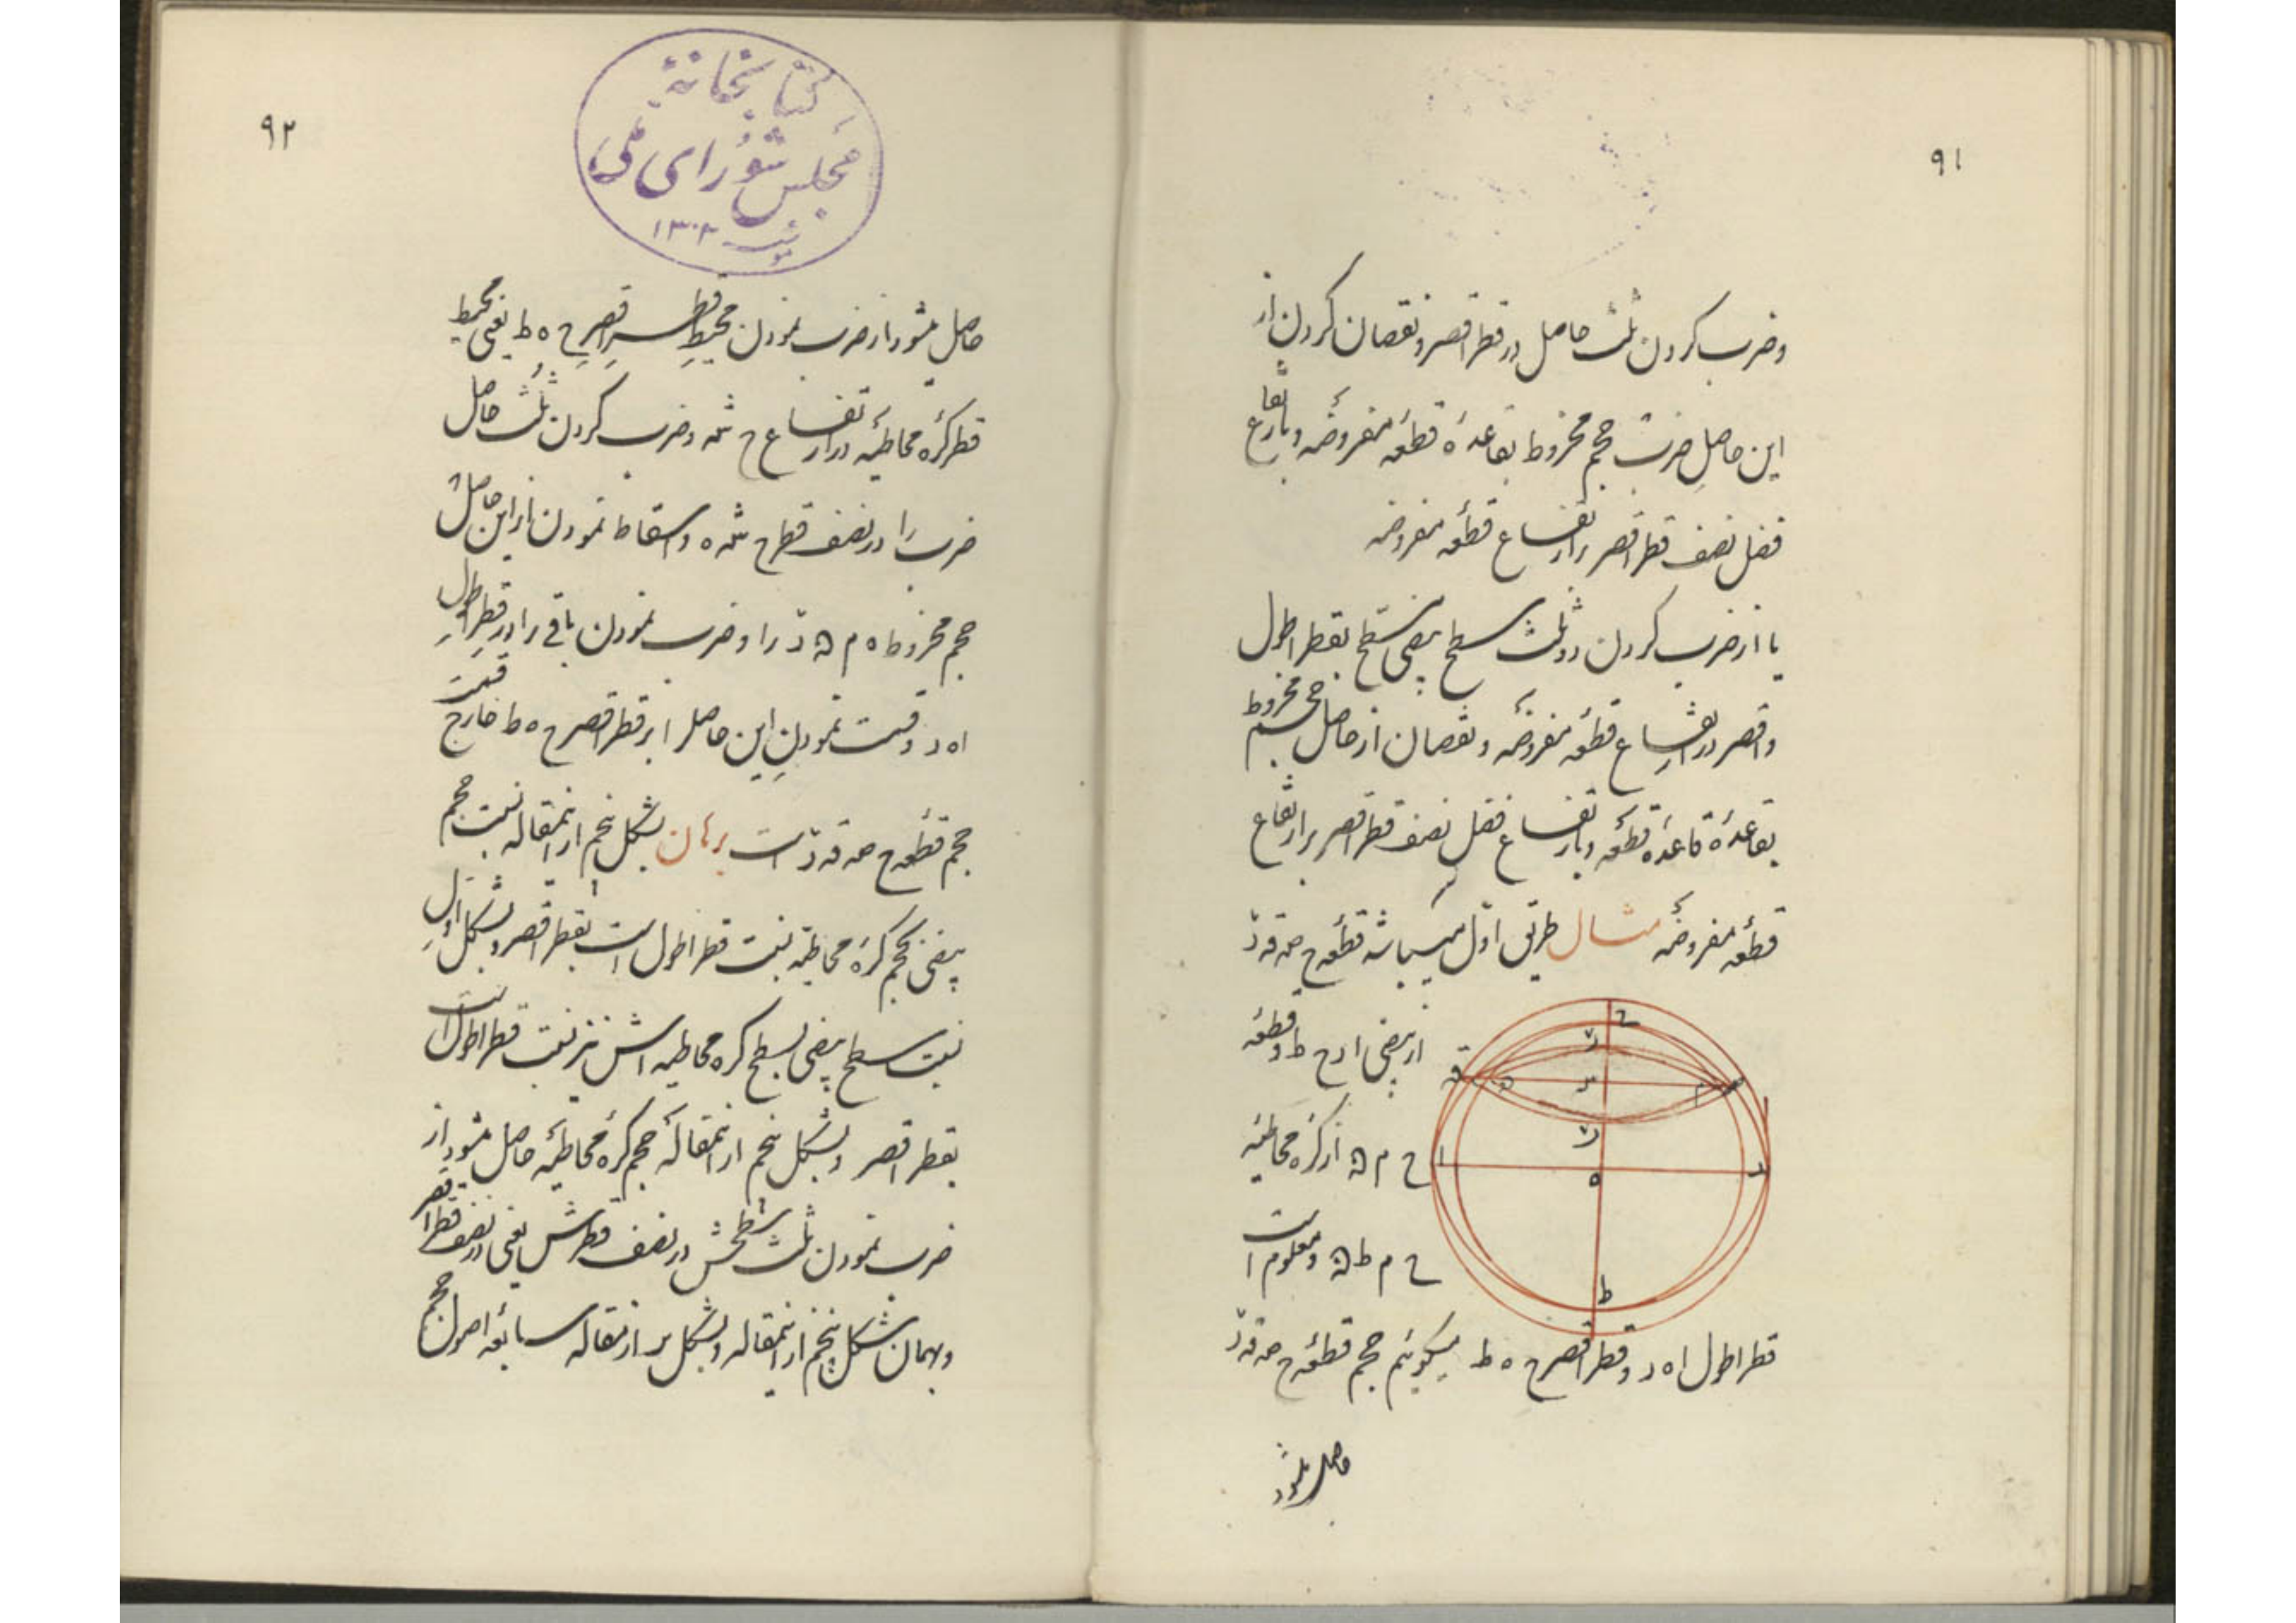 ۹۱
وضرب کردن ثلث حاصل در قطر اقصر و نقصان کردن از
این حاصل ضرب حجم مخروط بقاعدهٔ قطعه مفروضه و بارتفاع
فضل نصف قطر اقصر بر ارتفاع قطعه مفروضه
یا از ضرب کردن دو ثلث سطح بیضی مسطح بقطر اطول
و اقصر در ارتفاع قطعه مفروضه و نقصان از حاصل حجم مخروط
بقاعدهٔ قاعدهٔ قطعه و بارتفاع فضل نصف قطر اقصر بر ارتفاع
قطعهٔ مفروضه مثال طریق اول میباشد قطعه ح صه قه رّ
از بیضی ا ح د ط و قطعهٔ
ح م ﻫ از کرهٔ محاطیهٔ
ح م ط ﻫ و معلوم است
قطر اطول ا ه د و قطر اقصر ح ه ط میگوئیم حجم قطعه ح صه قه رّ
حاصل میشود
۹۲
کتابخانهٔ
مجلس شورای ملی
۱۳۰۲
حاصل میشود از ضرب نمودن محیط قطر اقصر ح ه ط یعنی محیط
قطر کرهٔ محاطیه در ارتفاع ح سه و ضرب کردن ثلث حاصل
ضرب را در نصف قطر ح سه ه و اسقاط نمودن از این حاصل
حجم مخروط ه م ﻫ رّ را و ضرب نمودن باقی را در قطر اطول
ا ه د و قسمت نمودن این حاصل را بر قطر اقصر ح ه ط خارج قسمت
حجم قطعه ح صه قه رّ است برهان بشکل پنجم از اینمقاله نسبت حجم
بیضی بحجم کرهٔ محاطیه نسبت قطر اطول است بقطر اقصر و بشکل اول
نسبت سطح بیضی بسطح کره محاطیه اش نیز نسبت قطر اطول است
بقطر اقصر و بشکل پنجم از اینمقاله حجم کرهٔ محاطیه حاصل میشود از
ضرب نمودن ثلث سطحش در نصف قطرش یعنی در نصف قطر اقصر
و بهمان شکل پنجم از اینمقاله و بشکل از مقاله سابعه اصول حجم